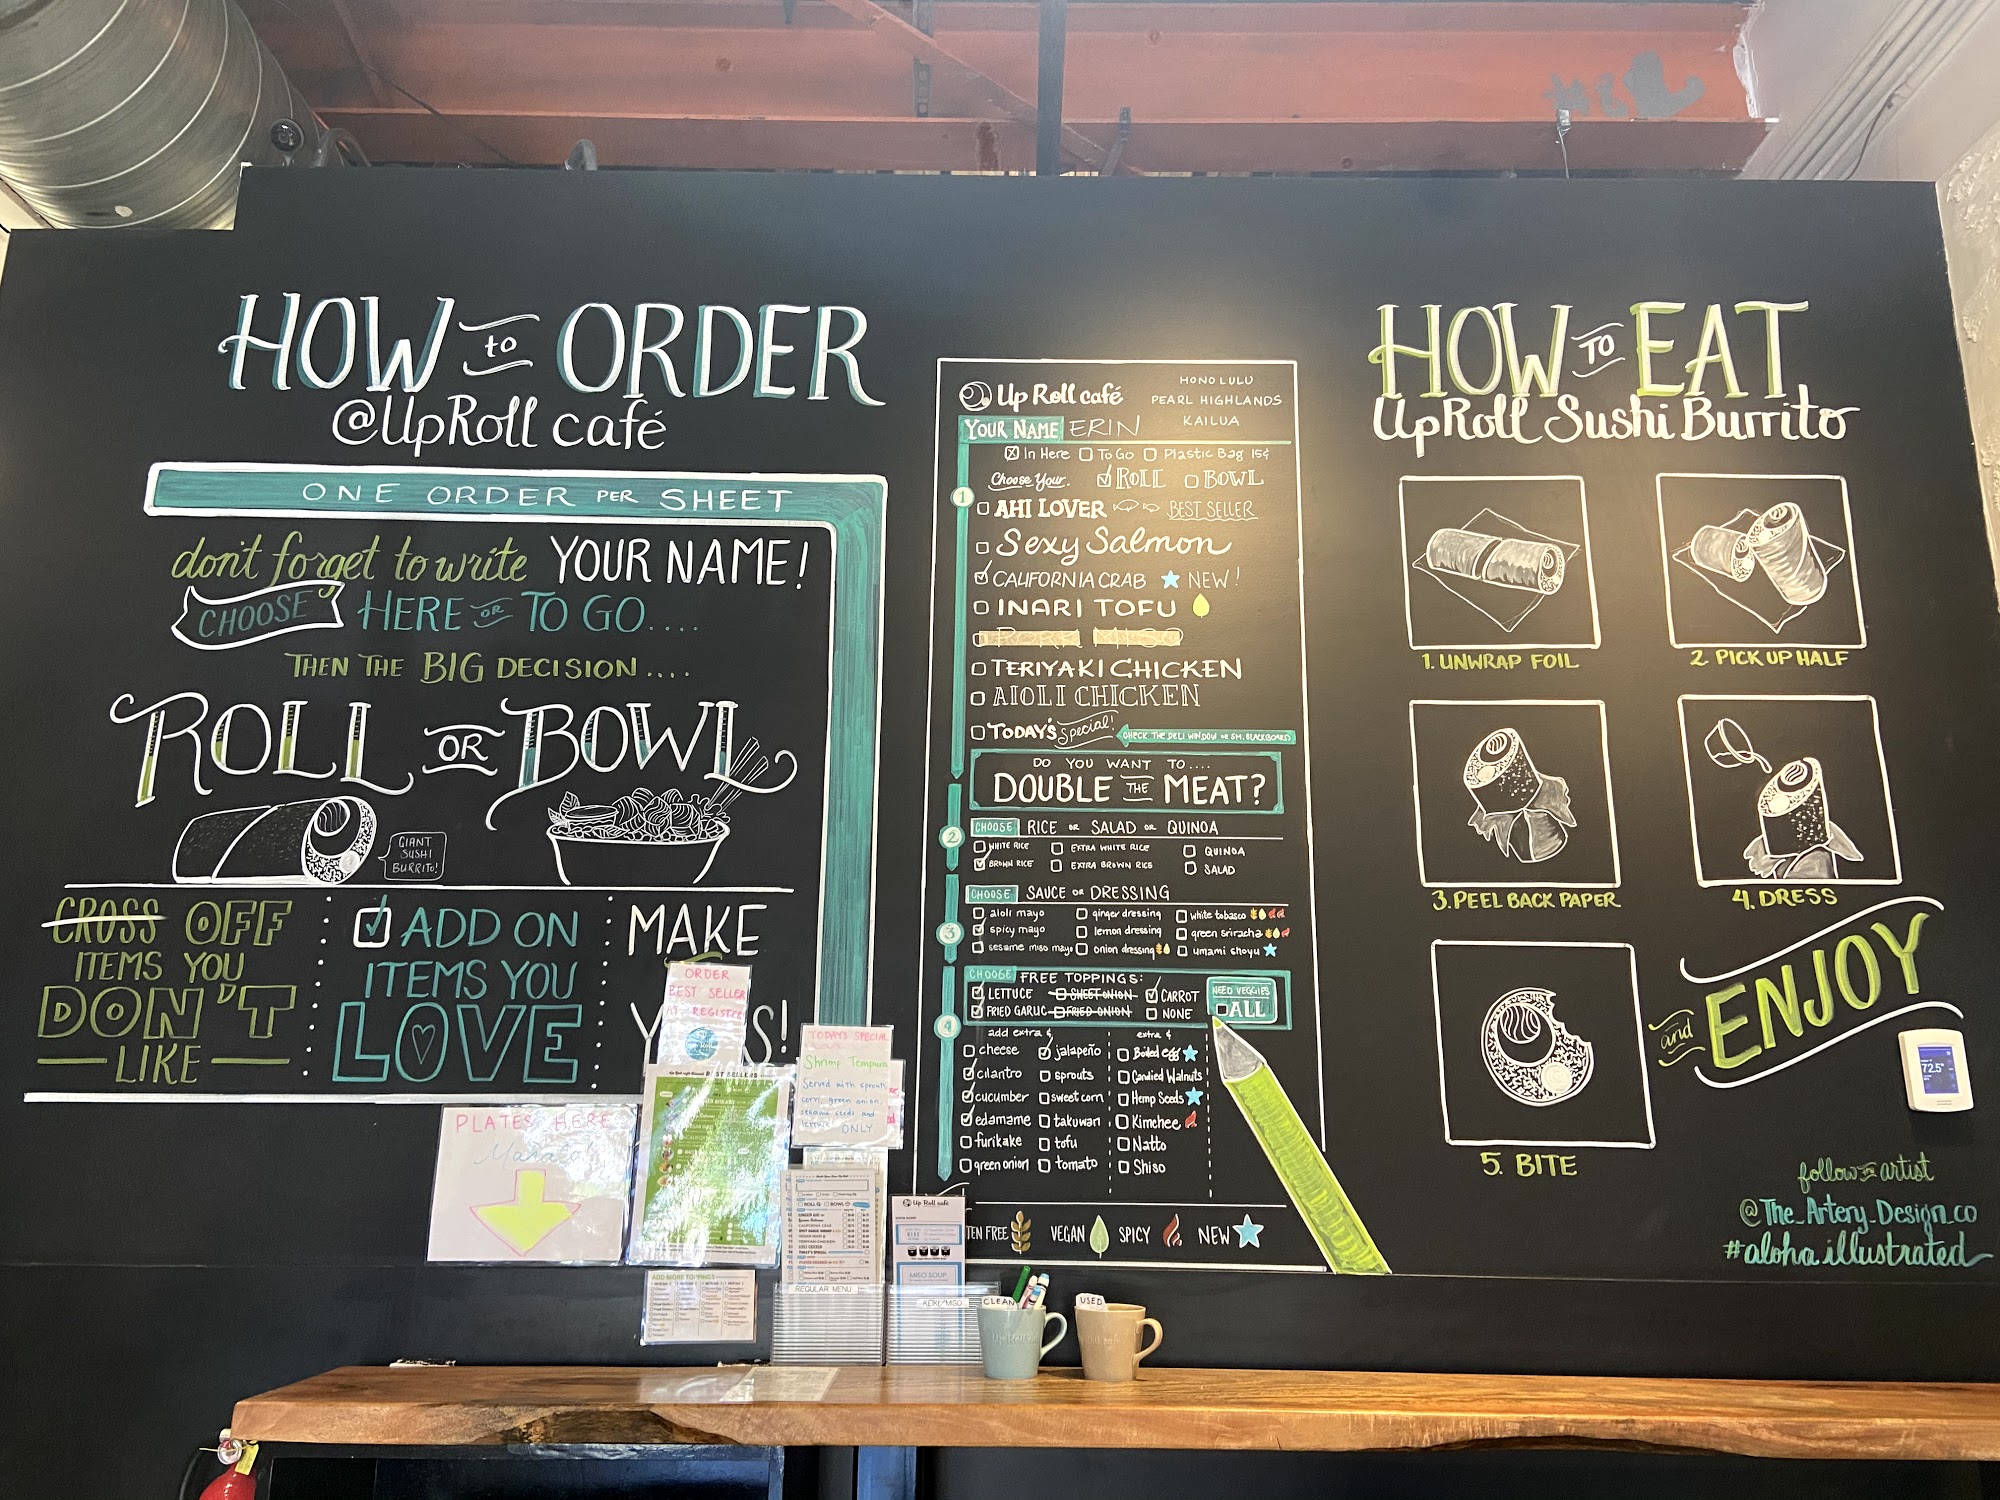 HOW to ORDER
@UpRoll café
ONE ORDER PER SHEET
don't forget to write YOUR NAME!
CHOOSE HERE OR TO GO....
THEN THE BIG DECISION....
ROLL OR BOWL
GIANT
SUSHI
BURRITO!
CROSS OFF
ITEMS YOU
DON'T
LIKE
ADD ON
ITEMS YOU
LOVE
MAKE
ORDER
BEST SELLER
AT REGISTER
BEST SELLERS
TODAY'S SPECIAL
Shrimp Tempura
Served with sprouts
corn, green onion,
sesame seeds and
lettuce ONLY
PLATES HERE
Mahalo
ADD MORE TOPPINGS
REGULAR MENU
Up Roll café
MISO SOUP
KEIKI/MISO
CLEAN
USED
Up Roll café
HONOLULU
PEARL HIGHLANDS
KAILUA
YOUR NAME ERIN
In Here To Go Plastic Bag 15¢
1
Choose Your: ROLL BOWL
AHI LOVER BEST SELLER
Sexy Salmon
CALIFORNIA CRAB NEW!
INARI TOFU
TERIYAKI CHICKEN
AIOLI CHICKEN
TODAY'S Special! CHECK THE DELI WINDOW OR SM. BLACKBOARD
DO YOU WANT TO....
DOUBLE THE MEAT?
2
CHOOSE RICE OR SALAD OR QUINOA
WHITE RICE EXTRA WHITE RICE QUINOA
BROWN RICE EXTRA BROWN RICE SALAD
3
CHOOSE SAUCE OR DRESSING
aioli mayo ginger dressing white tobasco
spicy mayo lemon dressing green sriracha
sesame miso mayo onion dressing umami shoyu
4
CHOOSE FREE TOPPINGS:
LETTUCE SWEET ONION CARROT
FRIED GARLIC FRIED ONION NONE
NEED VEGGIES
ALL
add extra ¢ extra ¢
cheese jalapeño Boiled egg
cilantro sprouts Candied Walnuts
cucumber sweet corn Hemp Seeds
edamame takuwan Kimchee
furikake tofu Natto
green onion tomato Shiso
TEN FREE VEGAN SPICY NEW
HOW TO EAT
UpRoll Sushi Burrito
1. UNWRAP FOIL
2. PICK UP HALF
3. PEEL BACK PAPER
4. DRESS
5. BITE
and ENJOY
72.5°
follow the artist
@The_Artery_Design_co
#alohaillustrated